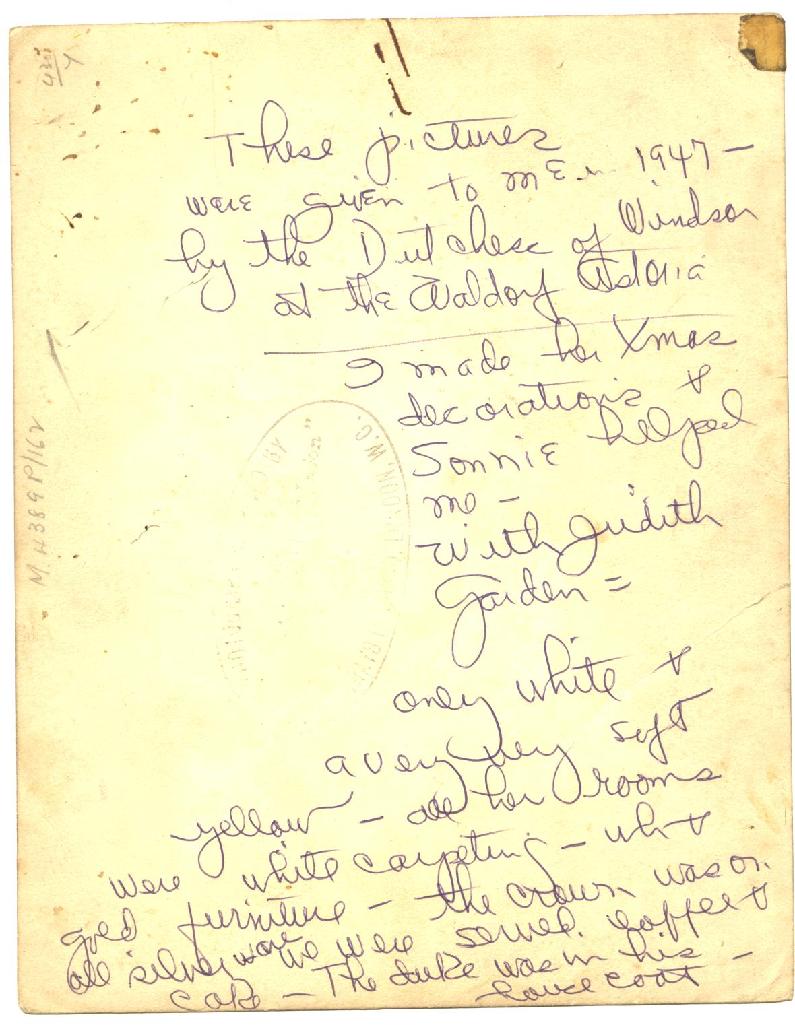 These pictures
were given to me in 1947 —
by the Dutchess of Windsor
at the Waldorf Astoria
I made her Xmas
decorations &
Sonnie helped
me —
with Judith
Garden =
only white &
a very very soft
yellow — all her rooms
were white carpeting — wh &
gold furniture — the crown was on
all silverware we were served coffee &
cake — The duke was in his
house coat —
M.W389P/162